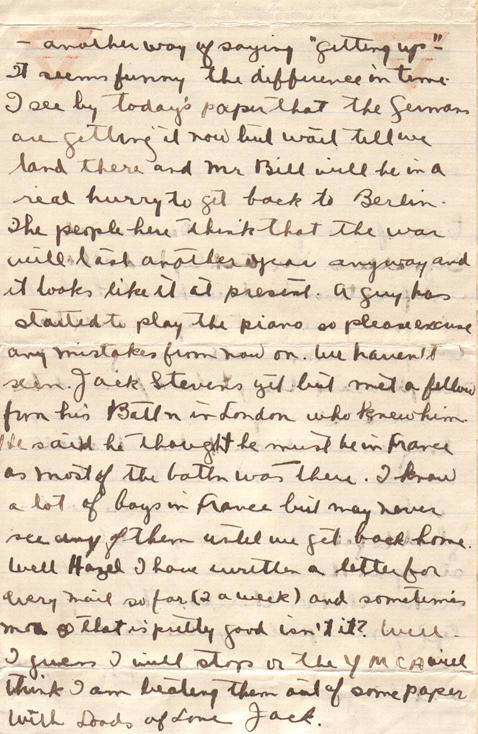 - another way of saying "getting up"-
It seems funny the difference in time.
I see by today's paper that the Germans
are getting it now but wait till we
land there and Mr Bill will be in a
real hurry to get back to Berlin.
The people here think that the war
will last another year anyway and
it looks like it at present. A guy has
started to play the piano so please excuse
any mistakes from now on. We haven't
seen Jack Stevens yet but met a fellow
from his Battn in London who knew him.
He said he thought he must be in France
as most of the battn was there. I know
a lot of boys in France but may never
see any of them until we get back home.
Well Hazel I have written a letter for
every mail so far (2 a week) and sometimes
more so that is pretty good isn't it? Well
I guess I will stop or the YMCA will
think I am beating them out of some paper
With Loads of Love Jack.